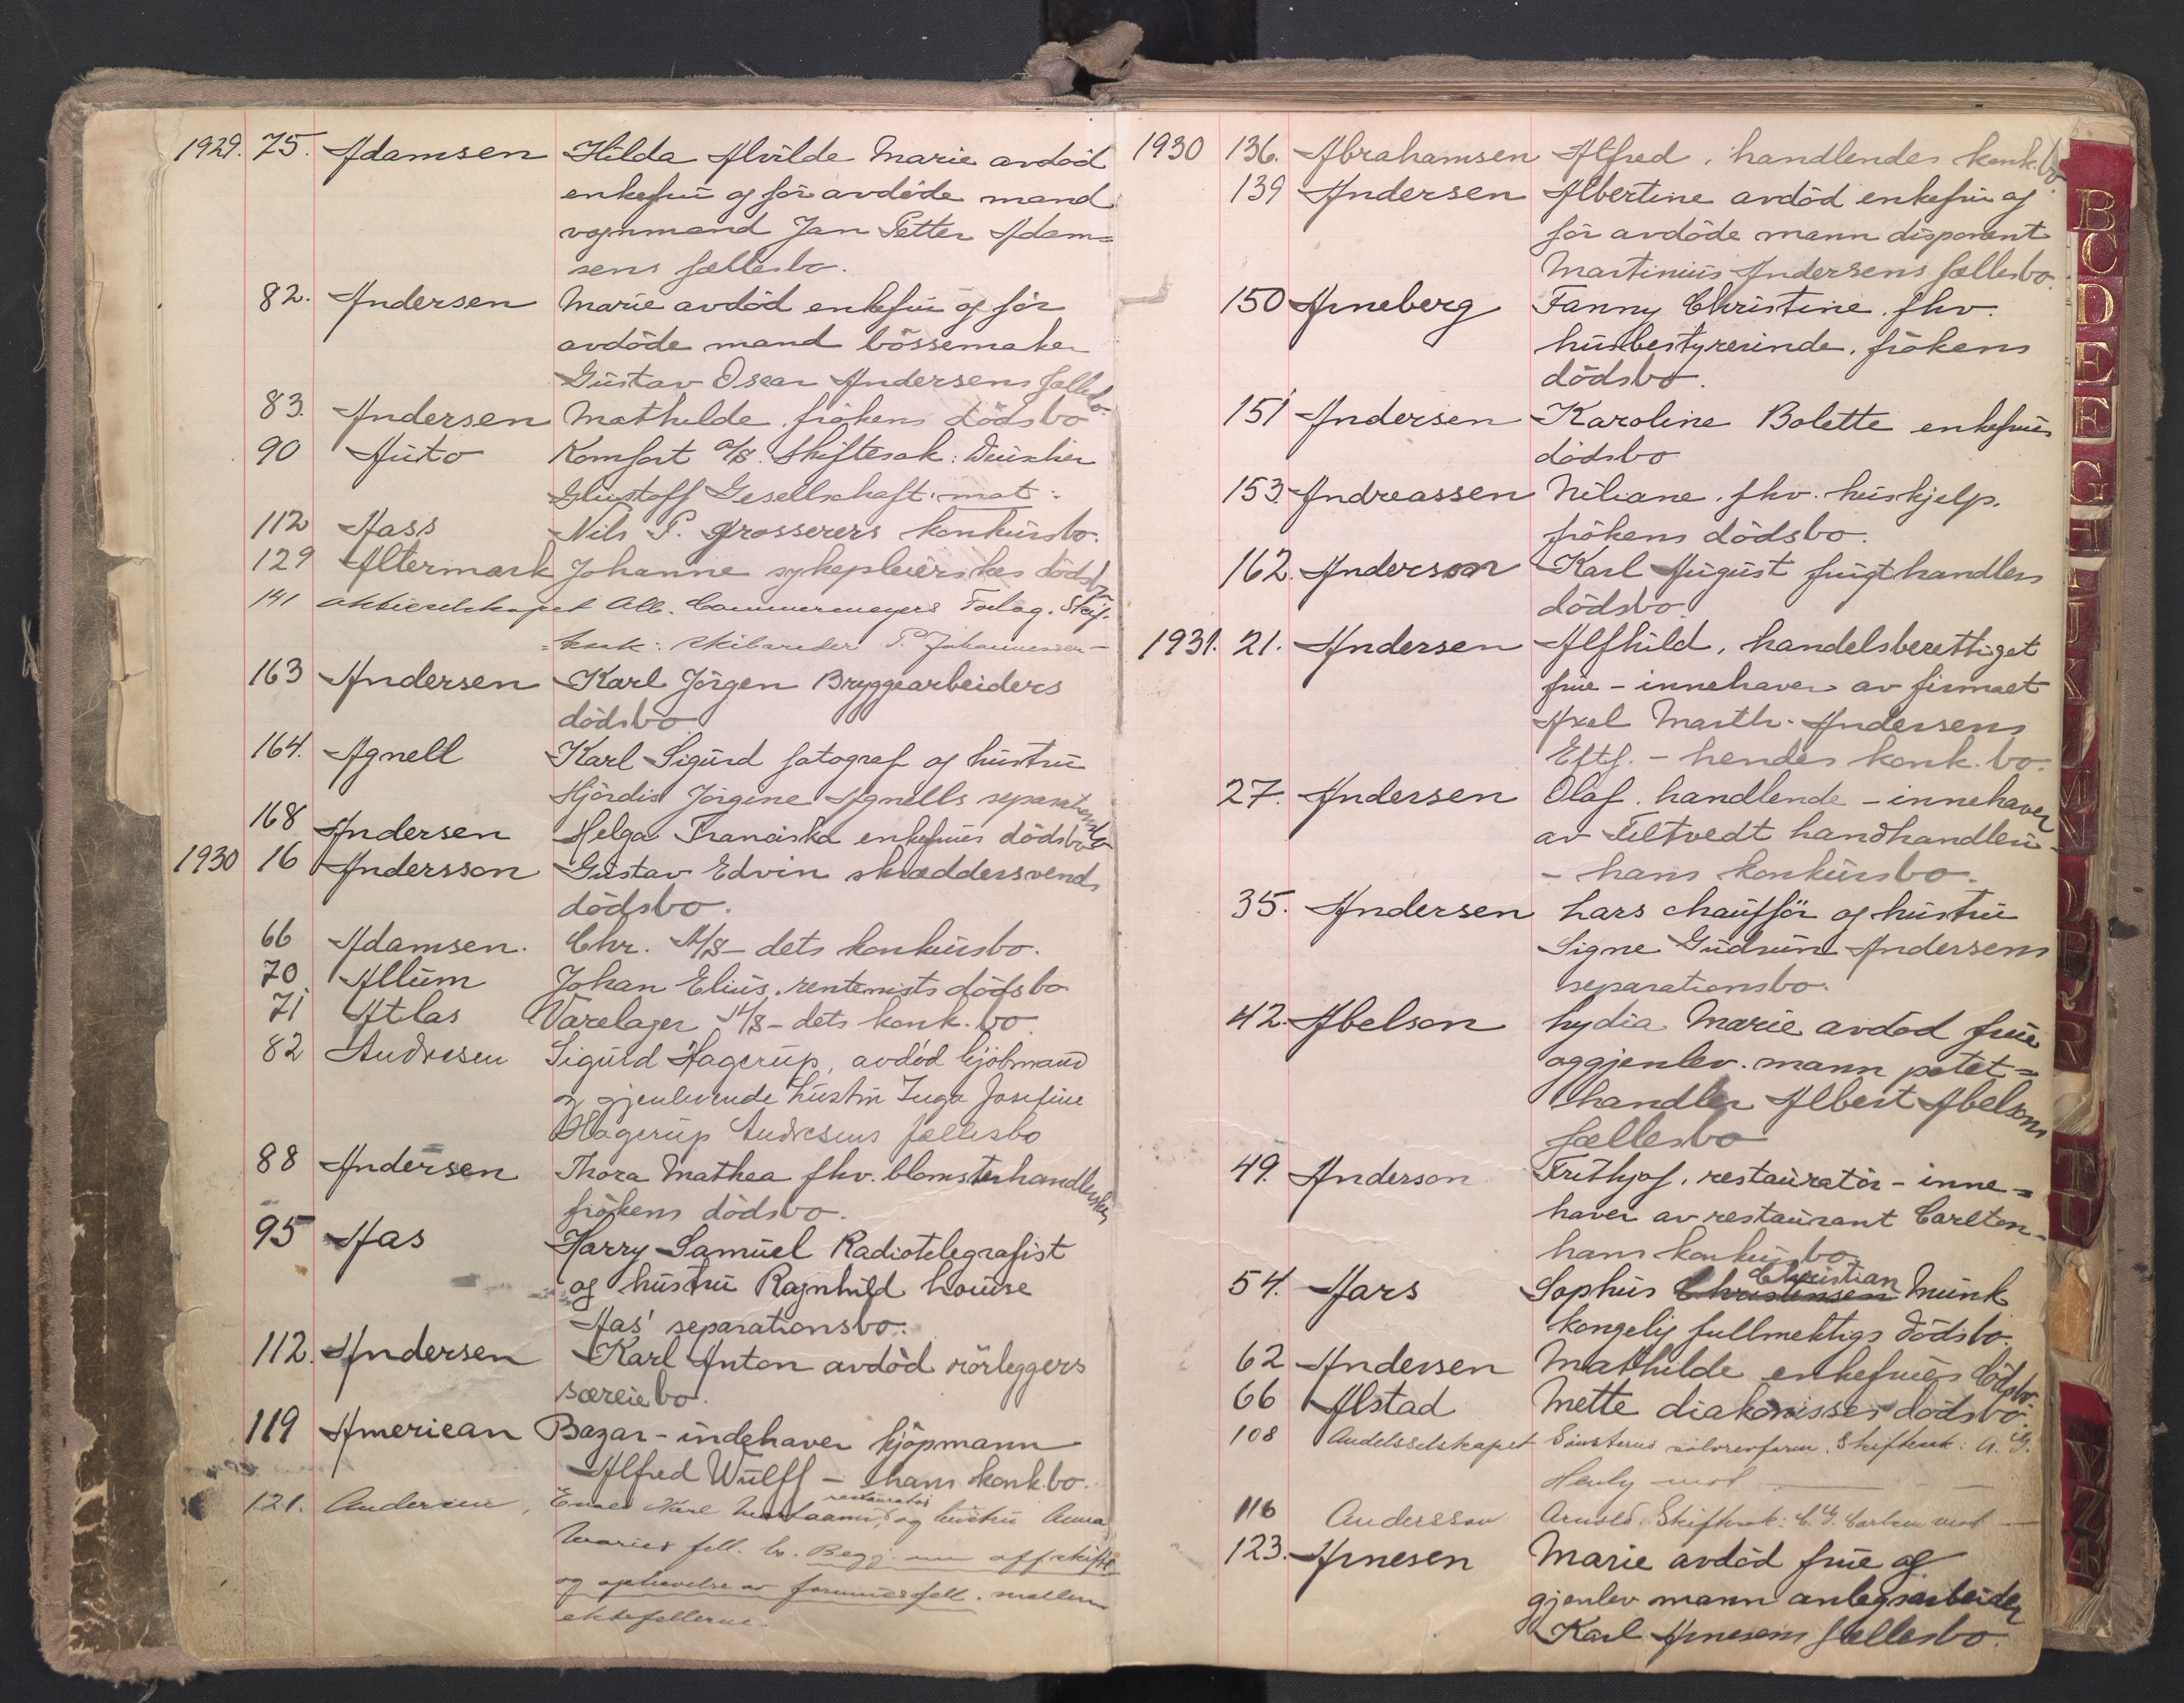 1929. 75. Adamsen Hilda Alvilde Marie avdød
enkefru og før avdøde mand
vognmand Jan Petter Adam=
sens fællesbo.
82. Andersen Marie avdød enkefru og før
avdøde mand bössemaker
Gustav Oscar Andersens fællesbo
83. Andersen Mathilde, frökens dödsbo
90 Auto Komfort A/S. Skiftesak:
Gesellschaft mot:
112 Aass Nils P. grosserers konkursbo.
129 Altermark Johanne sykepleierskes dödsbo
141 Aktieselskapet Alb. Cammermeyers Forlag. Skif-
=tesak: skibsreder P. Johannessen -
163 Andersen Karl Jörgen Bryggearbeiders
dödsbo
164. Agnell Karl Sigurd fotograf og hustru
Hjördis Jörgine Agnells separationsbo
168 Andersen Helga Franciska enkefrues dödsbo
1930 16 Andersson Gustav Edvin skræddersvends
dödsbo.
66 Adamsen. Chr. A/S - dets konkursbo.
70 Allum Johan Elius, rentenists dödsbo
71 Atlas Varelager A/S - dets konk. bo.
82 Andresen Sigurd Hagerup, avdød kjöbmand
og gjenlevende hustru Inga Josefine
Hagerup Andresens fællesbo
88 Andersen Thora Mathea fhv. blomsterhandlerskes
frökens dödsbo.
95 Aas Harry Samuel Radiotelegrafist
og hustru Ragnhild Louise
Aas' separationsbo.
112. Andersen Karl Anton avdød rörleggers
særeiebo.
119 American Bazar - indehaver kjöpmann
Alfred Wulff - hans konk.bo.
121. Andersen, Karl restauratör og hustru Anna
Maries fell. bo. Begj. om offskifte
og ophevelse av formuesfell. mellem
ektefellerne.
1930 136. Abrahamsen Alfred, handlendes konk.bo.
139 Andersen Albertine avdöd enkefru og
för avdöde mann disponent
Martinius Andersens fællesbo.
150 Arneberg Fanny Christine, fhv.
husbestyrerinde, frökens
dödsbo.
151 Andersen Karoline Bolette enkefrues
dödsbo
153. Andreassen Niliane, fhv. huskjelp,
frökens dödsbo.
162. Anderson Karl August frugthandlers
dödsbo.
1931. 21. Andersen Alfhild, handelsberettiget
frue - innehaver av firmaet
Axel Marth. Andersens
Eftf. - hendes konk. bo.
27. Andersen Olaf, handlende - innehaver
av Filtvedt landhandleri -
- hans konkursbo.
35. Andersen Lars chaufför og hustru
Signe Gudrun Andersens
separationsbo.
42. Abelson Lydia Marie avdöd frue
og gjenlev. mann potet=
handler Albert Abelsons
fællesbo
49. Anderson Frithjof, restauratör - inne=
haver av restaurant Carlton -
hans konkursbo.
54. Aars Sophus Christensen Christian Munk
kongelig fullmektigs dödsbo.
62 Andersen Mathilde enkefrues dödsbo.
66 Alstad Mette diakonisses dödsbo.
108 Andelsselskapet sölvrevfarm. Skiftesak: A. G.
mot
116 Andersson Arnold. Skiftesak: C. G. Carlsen mot
123. Arnesen Marie avdöd frue og
gjenlev mann anlegsarbeider
Karl Arnesens fællesbo.
B
C
D
E
F
G
H
I
J
K
M
N
O
P
R
T
U
Y
Z
Æ